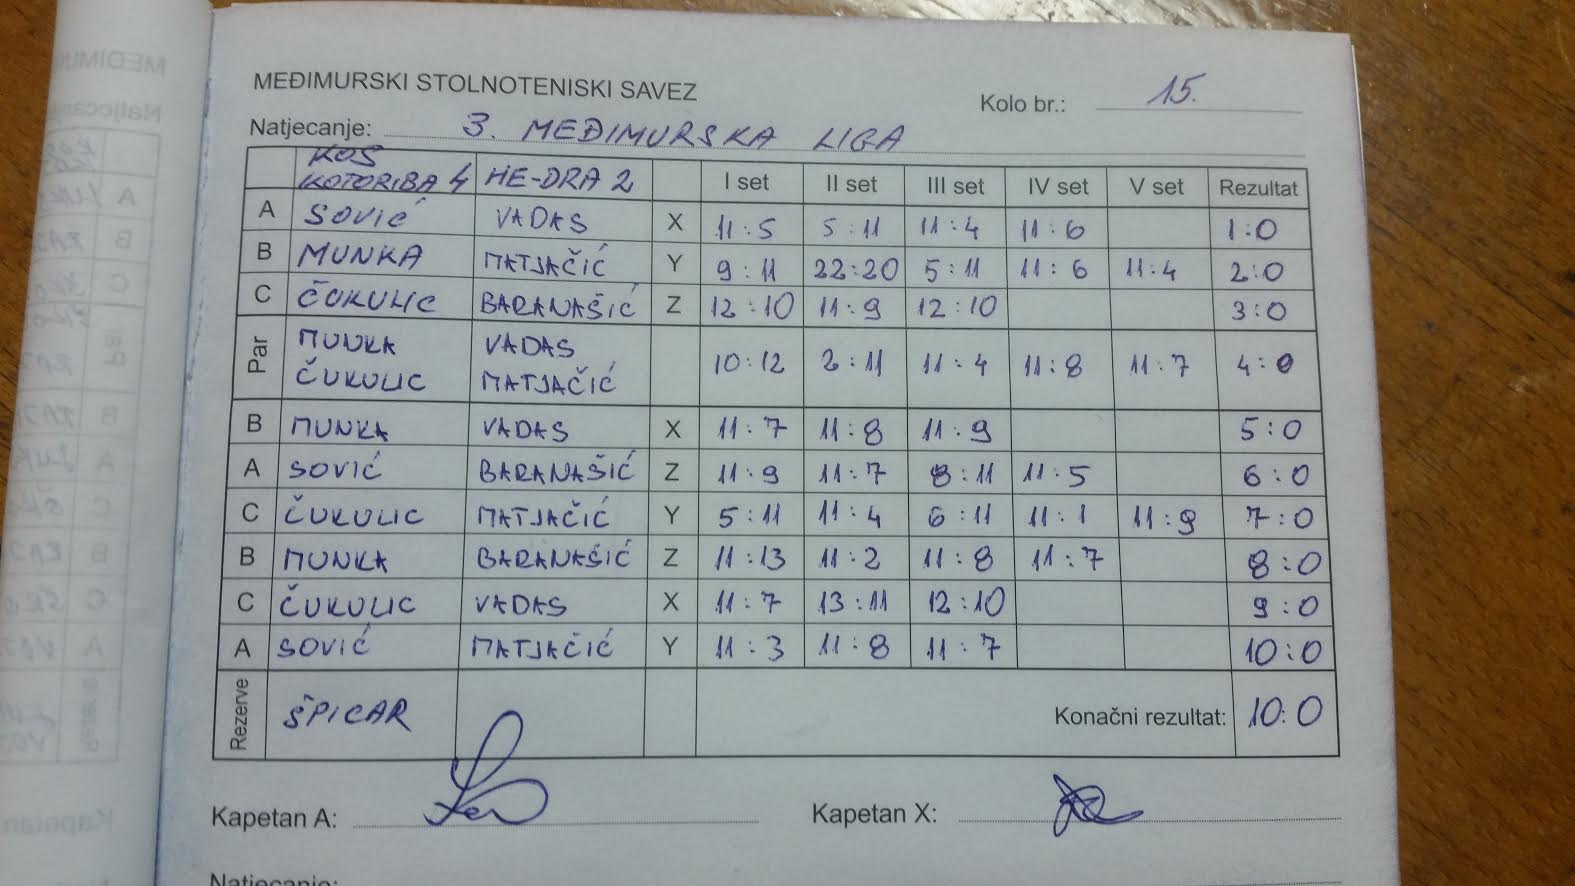 MEĐIMURSKI STOLNOTENISKI SAVEZ
Kolo br.: 15.
Natjecanje: 3. MEĐIMURSKA LIGA
KOŠ
KOTORIBA 4 HE-DRA 2 I set II set III set IV set V set Rezultat
A SOVIĆ VADAS X 11:5 5:11 11:4 11:6 1:0
B MUNKA MATJAČIĆ Y 9:11 22:20 5:11 11:6 11:4 2:0
C ČUKULIC BARANAŠIĆ Z 12:10 11:9 12:10 3:0
Par MUNKA VADAS 10:12 2:11 11:4 11:8 11:7 4:0
ČUKULIC MATJAČIĆ
B MUNKA VADAS X 11:7 11:8 11:9 5:0
A SOVIĆ BARANAŠIĆ Z 11:9 11:7 8:11 11:5 6:0
C ČUKULIC MATJAČIĆ Y 5:11 11:4 6:11 11:1 11:9 7:0
B MUNKA BARANAŠIĆ Z 11:13 11:2 11:8 11:7 8:0
C ČUKULIC VADAS X 11:7 13:11 12:10 9:0
A SOVIĆ MATJAČIĆ Y 11:3 11:8 11:7 10:0
Rezerve ŠPICAR Konačni rezultat: 10:0
Kapetan A: Kapetan X:
Natjecanje: